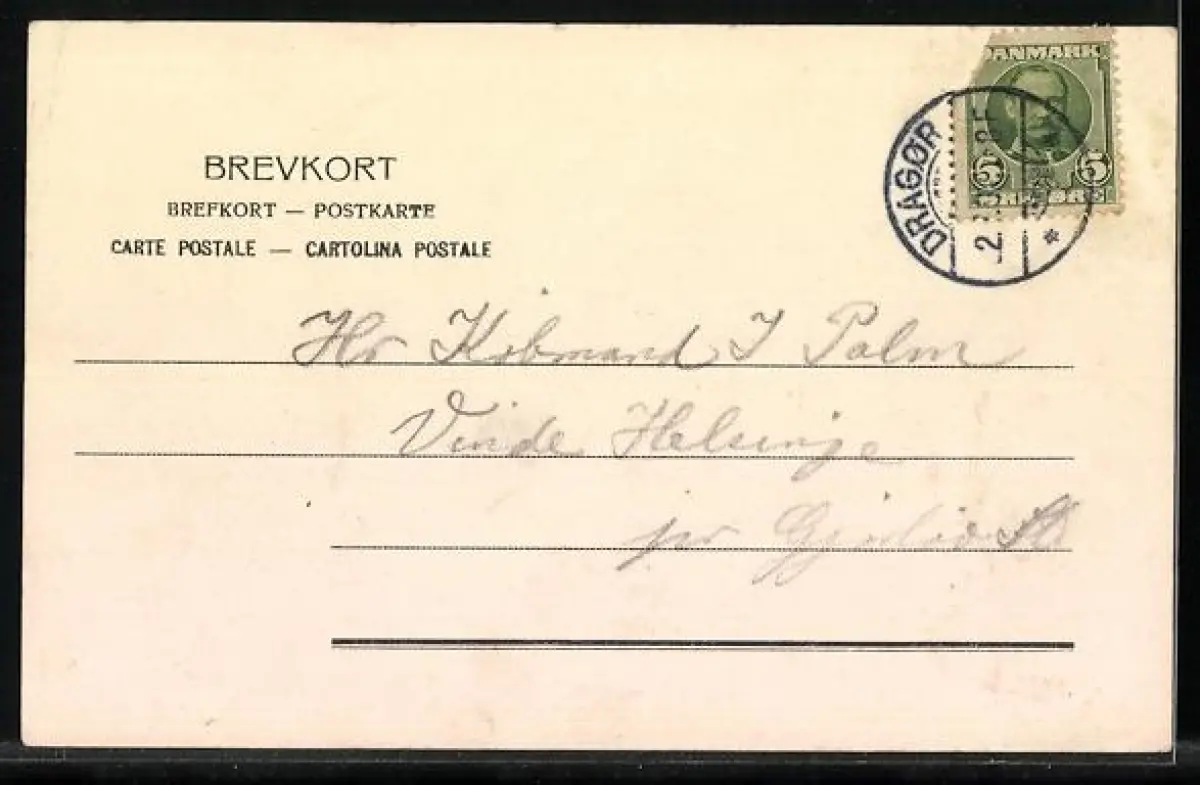 DANMARK
5 5
ØRE
DRAGØR
BREVKORT
BREFKORT — POSTKARTE
CARTE POSTALE — CARTOLINA POSTALE
Hr Købmand I Palm
Vinde Helsinge
pr Gjørløv St